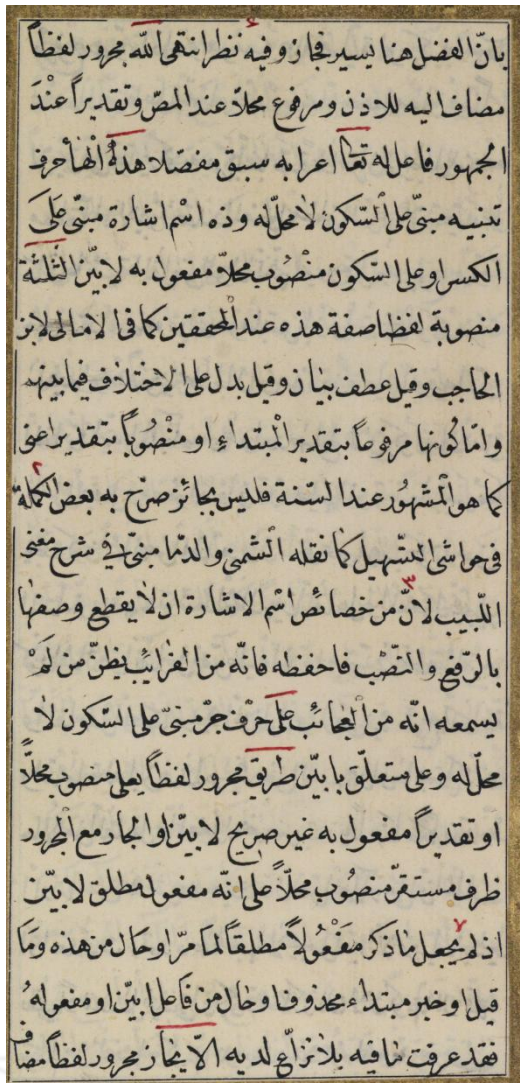 بانّ الفضل هنا يسير فجاز وفيه نظر انتهى الله مجرور لفظاً
مضاف اليه للاذن ومرفوع محلاّ عند المصّ وتقديراً عنْدَ
الجمهور فاعل له تعا اعرابه سبق مفصّلا هذه الْهٰأ حرف
تنبيه مبنىّ على السّكون لا محلّ له وذه اسْم اشارة مبنىّ عَلَى
الكسر او على السّكون منْصُوب محلاّ مفعول به لابيّن الثّلثة
منصوبة لفظا صفة هذه عند المحققين كما فى الامالى لابن
الحاجب وقيل عطف بيٰان وقيل بدل على الاختلاف فيما بينهم
وامّا كونها مرفوعاً بتقدير الْمبتداءِ او منْصُوباً بتقدير اعنى
كما هو الْمشهُور عند السّنة فليس بجائز صرّح به بعض الكملة
فى حواشى التسّهيل كمٰا نقله الشّمنى والدّمامينىّ فى شرح مغنى
اللّبيب لانّ من خصائص اسْم الاشارة ان لا يقطع وصفها
بالرّفع والنّصْب فاحفظه فانّه من الغرائب يظنّ من لَمْ
يسمعه انّه من العجائب على حرْف جرّ مبنىّ على السّكون لاٰ
محلّ له وعلى متعلّق بابيّن طريق مجرور لفظاً بعلى منصوب محلاًّ
او تقديراً مفعول به غير صريح لابيّن او الجار مع الْمجرور
ظرف مستقرّ منصُوب محلاًّ على انّه مفعول مطلق لابيّن
اذ لم يجعل مٰا ذكر مَفْعُولاً مطلقاً لمٰا مرّ او حال من هذه ومَا
قيل او خبر مبتداء محذوف او حٰال من فَاعل ابيّن او مفعولهُ
فقد عرفت مٰا فيه بلا نزاع لديه الايجاز مجرور لفظاً مضاف